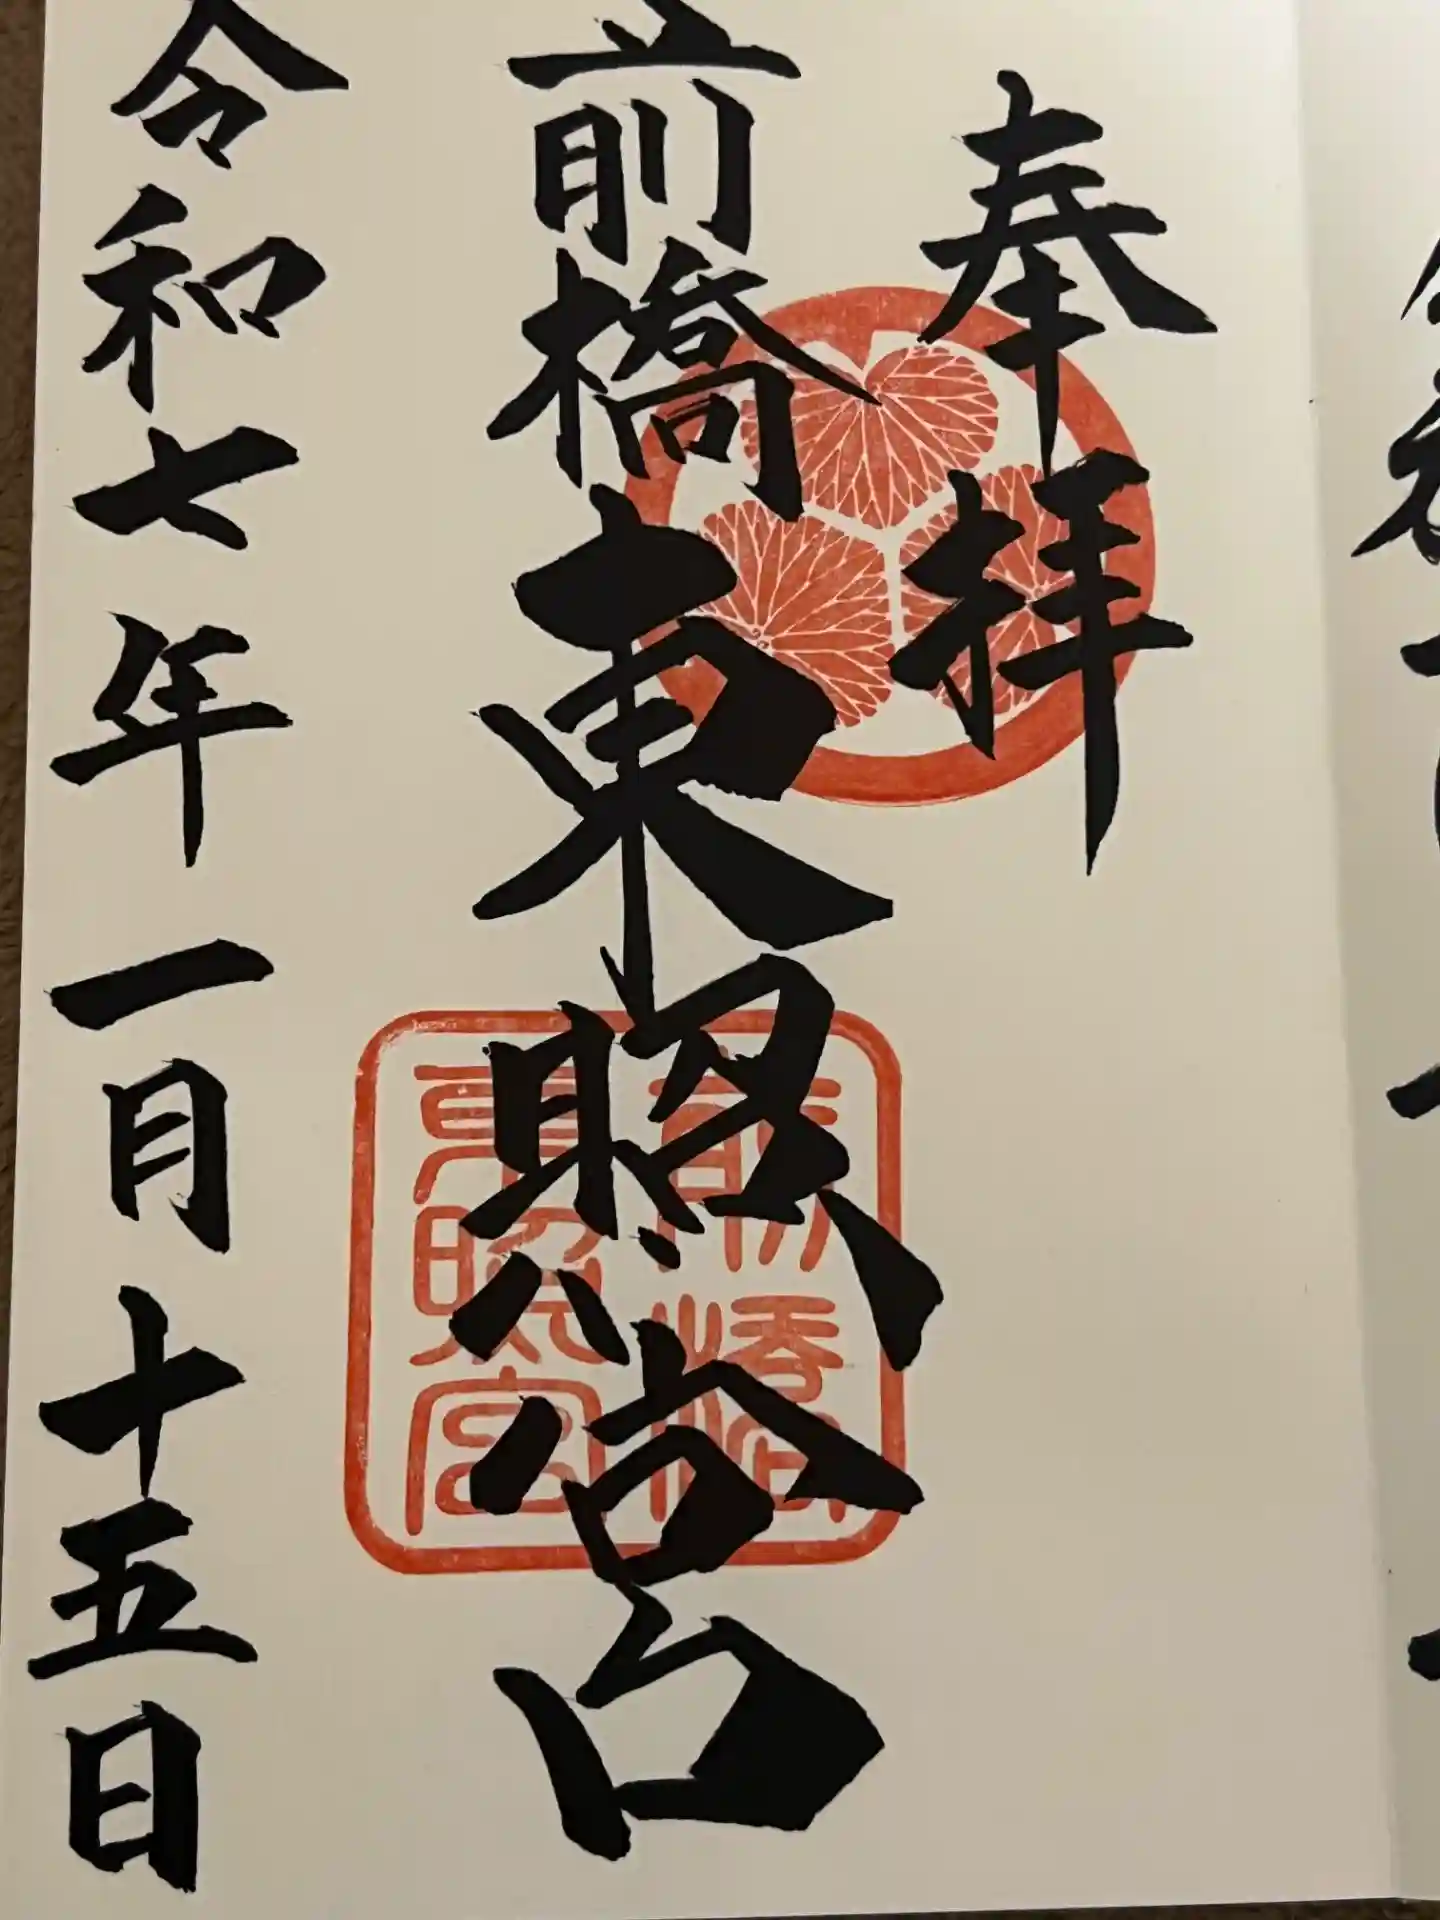 奉拝
前橋東照宮
前橋
東照宮
令和七年一月十五日